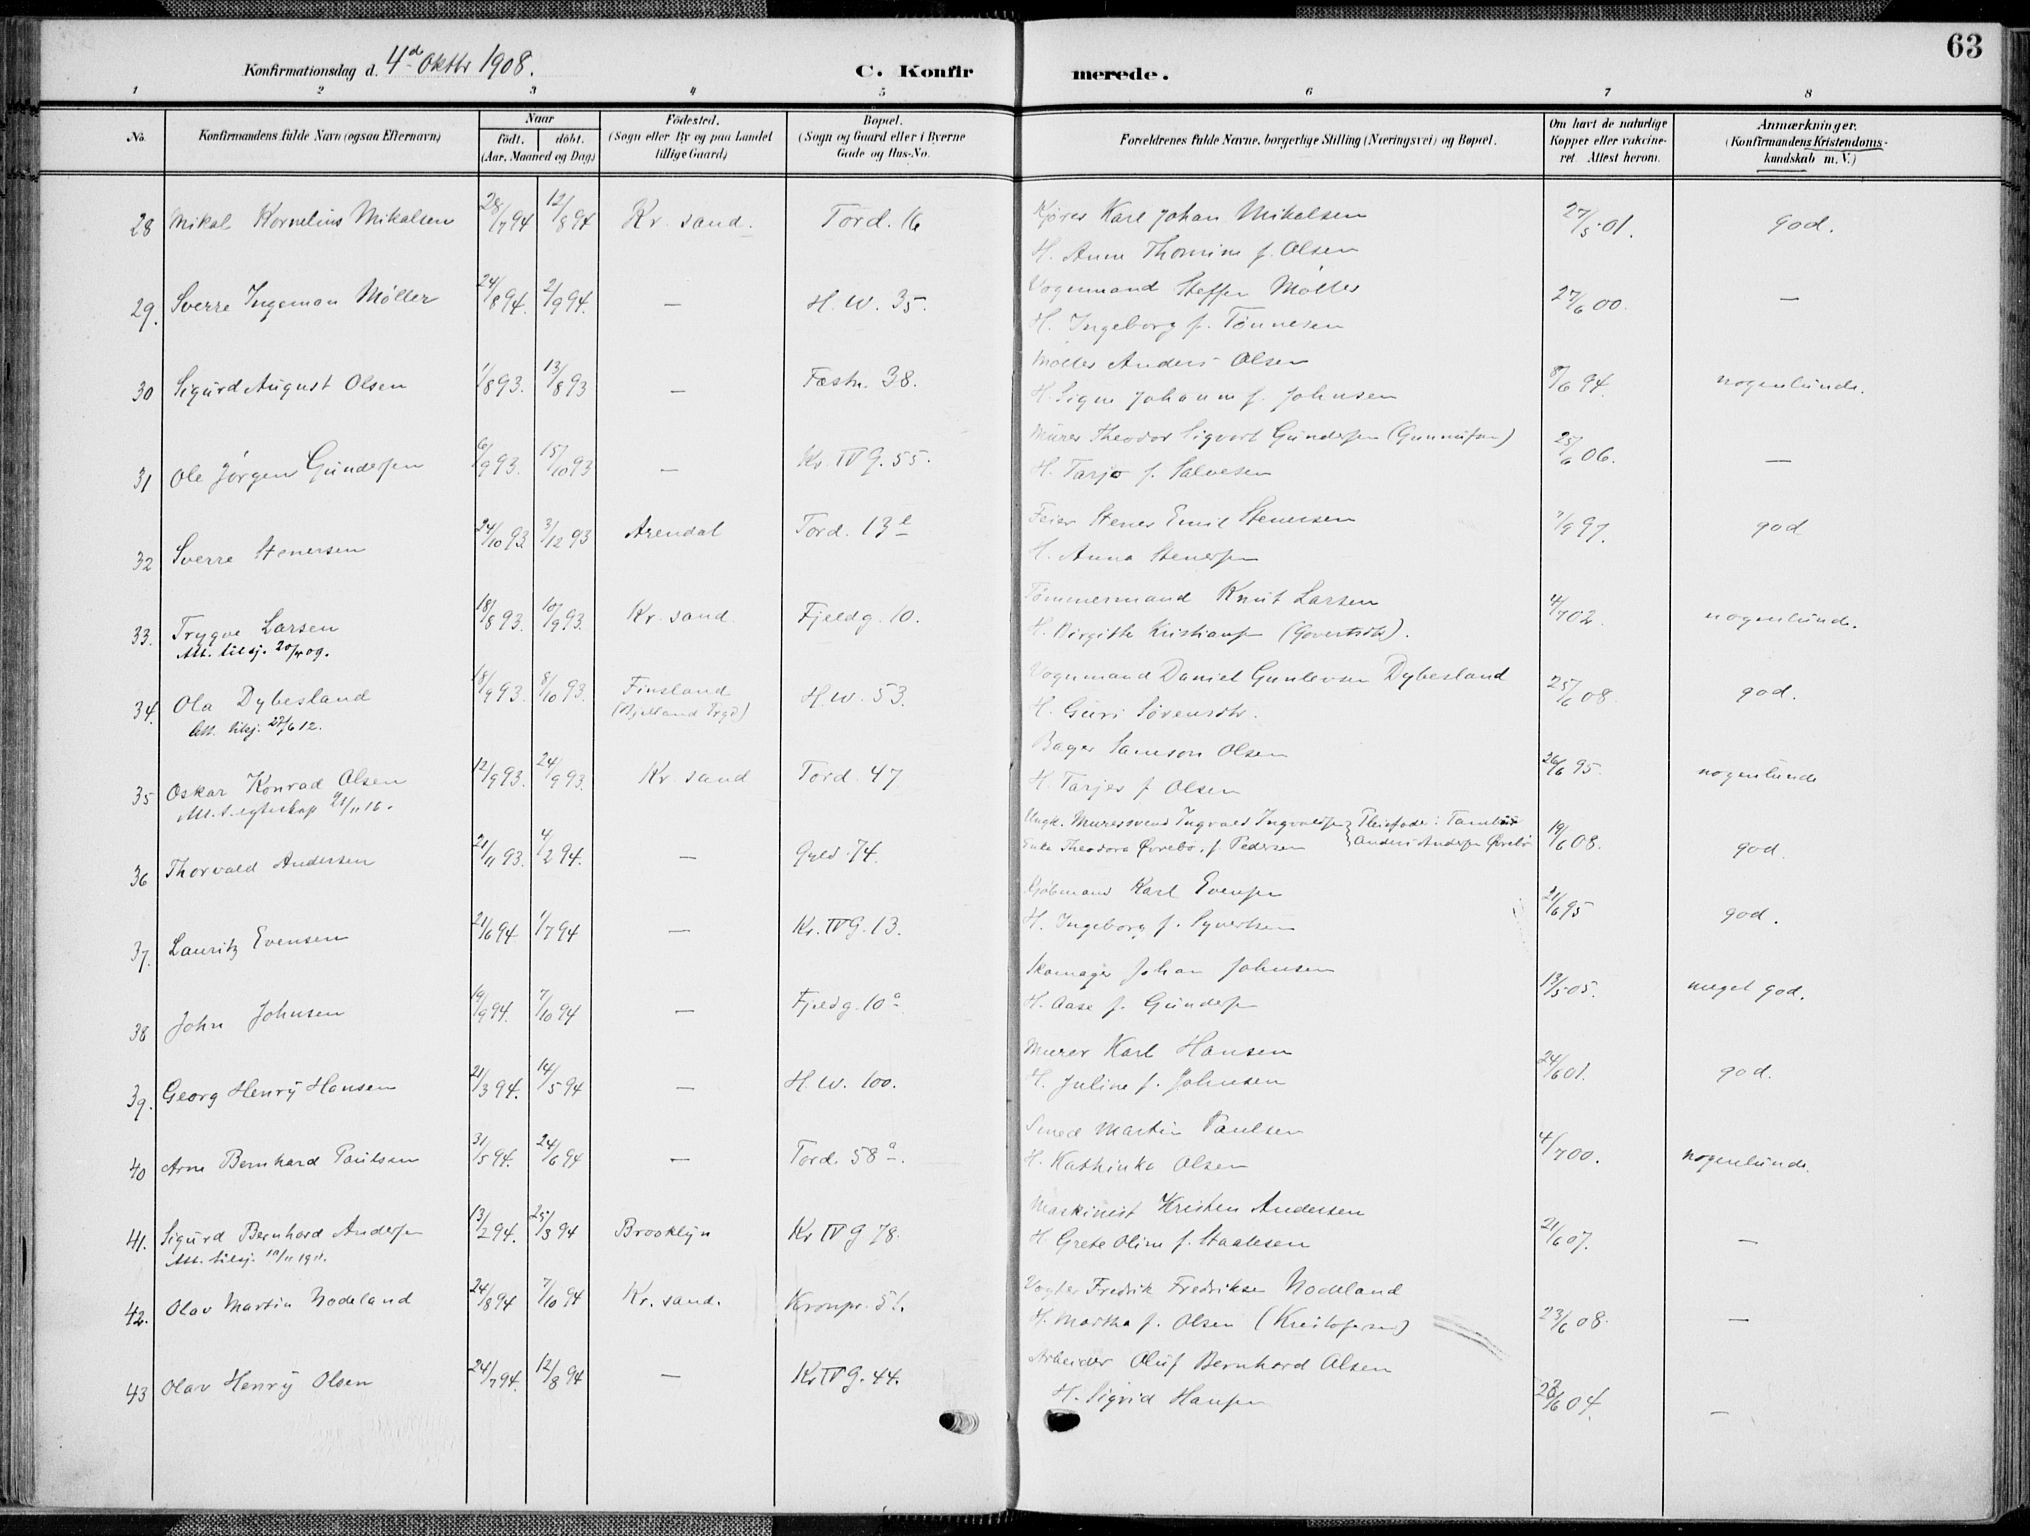 63
Konfirmationsdag d. 4de Oktbr 1908.
C. Konfirmerede.
1 2 3 4 5 6 7 8
No. Konfirmandens fulde Navn (ogsaa Efternavn) Naar født. døbt. (Aar, Maaned og Dag) Fødested. (Sogn eller By og paa Landet tillige Gaard) Bopæl. (Sogn og Gaard eller i Byerne Gade og Hus-No. Forældrenes fulde Navne, borgerlige Stilling (Næringsvei) og Bopæl. Om havt de naturlige Kopper eller vakcineret. Attest herom. Anmærkninger. (Konfirmandens Kristendomskundskab m. V.)
28 Mikal Kornelius Mikalsen 28/7 94 12/8 94 Kr. sand. Tord. 16 Kjører Karl Johan Mikalsen 27/5 01. god.
H. Anne Thomine f. Olsen
29. Sverre Ingeman Møller 24/8 94. 2/9 94. — H. W. 35. Vognmand Steffen Møller 27/6 00. —
H. Ingeborg f. Tønnesen
30 Sigurd August Olsen 1/8 93. 13/8 93 — Fæstn. 38. Møller Anders Olsen 8/6 94. nogenlunde.
H. Signe Johanne f. Johnsen
31 Ole Jørgen Gundersen 6/9 93. 15/10 93 — Kr. IV G. 55. Murer Theodor Sigvart Gundersen (Gunnufsen) 25/6 06. —
H. Tarjo f. Salvesen
32 Sverre Stenersen 24/10 93. 3/12 93 Arendal Tord. 13 Feier Stener Emil Stenersen 7/9 97. god
H. Anna Stenersen
33. Trygve Larsen 18/8 93. 10/9 93. Kr. sand. Fjeldg. 10. Tømmermand Knut Larsen 4/7 02. nogenlunde.
Att. tilsj. 20/4 09. H. Birgitte Kristiansen (Govertsdtr).
34. Ola Dybesland 18/9 93. 8/10 93. Finsland H. W. 53. Vognmand Daniel Gunlevsen Dybesland 25/6 08. god.
Att. tilsj. 27/6 12. (Bjelland Prgd) H. Guri Sørensdtr.
35 Oskar Konrad Olsen 12/9 93. 24/9 93. Kr. sand Tord. 47 Bager Samson Olsen 26/6 95. nogenlunde
Att. t. egteskap 21/11 16. H. Tarjer f. Olsen
36 Thorvald Andersen 21/11 93. 4/2 94. — Gyld. 74. Ungk. Murersvend Ingvald Ingvaldsen 19/6 08. god.
Enke Theodora Øvrebø, f. Pedersen Anders Andersen Øvrebø
37. Lauritz Evensen 21/6 94. 1/7 94 — Kr. IV G. 13. Kjøbmand Karl Evensen 21/6 95 god.
H. Ingeborg f. Syvertsen
38 John Johnsen 19/9 94. 7/10 94 — Fjeldg. 10 a Skomager Johan Johnsen 13/5 05. meget god.
H. Aase f. Gundersen
39. Georg Henry Hansen 21/3 94. 14/5 94 — H. W. 100. Murer Karl Hansen 24/6 01. god.
H. Juline f. Johnsen
40 Arne Bernhard Paulsen 31/5 94. 24/6 94 — Tord. 58 a. Smed Martin Paulsen 4/7 00. nogenlunde.
H. Kathinka Olsen
41. Sigurd Bernhard Andersen 13/2 94. 25/3 94 Brooklyn Kr IV G 78. Maskinist Kristen Andersen 21/6 07. —
Att. tilsj. 10/11 1911. H. Grete Oline f. Staalesen
42. Olav Martin Nodeland 24/8 94 7/10 94 Kr. sand. Kronpr. 51. Vogter Fredrik Fredriksen Nodeland 23/6 08. —
H. Martha f. Olsen (Kristofersen)
43 Olav Henry Olsen 24/7 94. 12/8 94 — Kr IV G. 44. Arbeider Oluf Bernhard Olsen 23/6 04. —
H. Sigrid Hansen